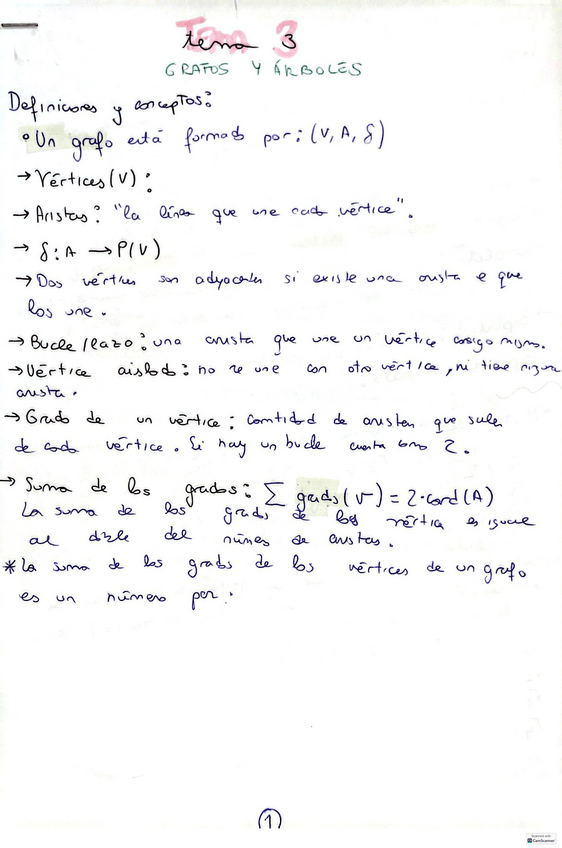 tema 3
GRAFOS Y ÁRBOLES
Definiciones y conceptos:
° Un grafo está formado por: (V, A, δ)
→ Vértices (V):
→ Aristas: "la línea que une cada vértice".
→ δ: A → P(V)
→ Dos vértices son adyacentes si existe una arista e que
los une.
→ Bucle/lazo: una arista que une un vértice consigo mismo.
→ Vértice aislado: no se une con otro vértice, ni tiene ninguna
arista.
→ Grado de un vértice: cantidad de aristas que salen
de cada vértice. Si hay un bucle cuenta como 2.
→ Suma de los grados: ∑ grados(v) = 2·card(A)
La suma de los grados de los vértices es igual
al doble del número de aristas.
* la suma de los grados de los vértices de un grafo
es un número par.
1
Scanned with
CamScanner